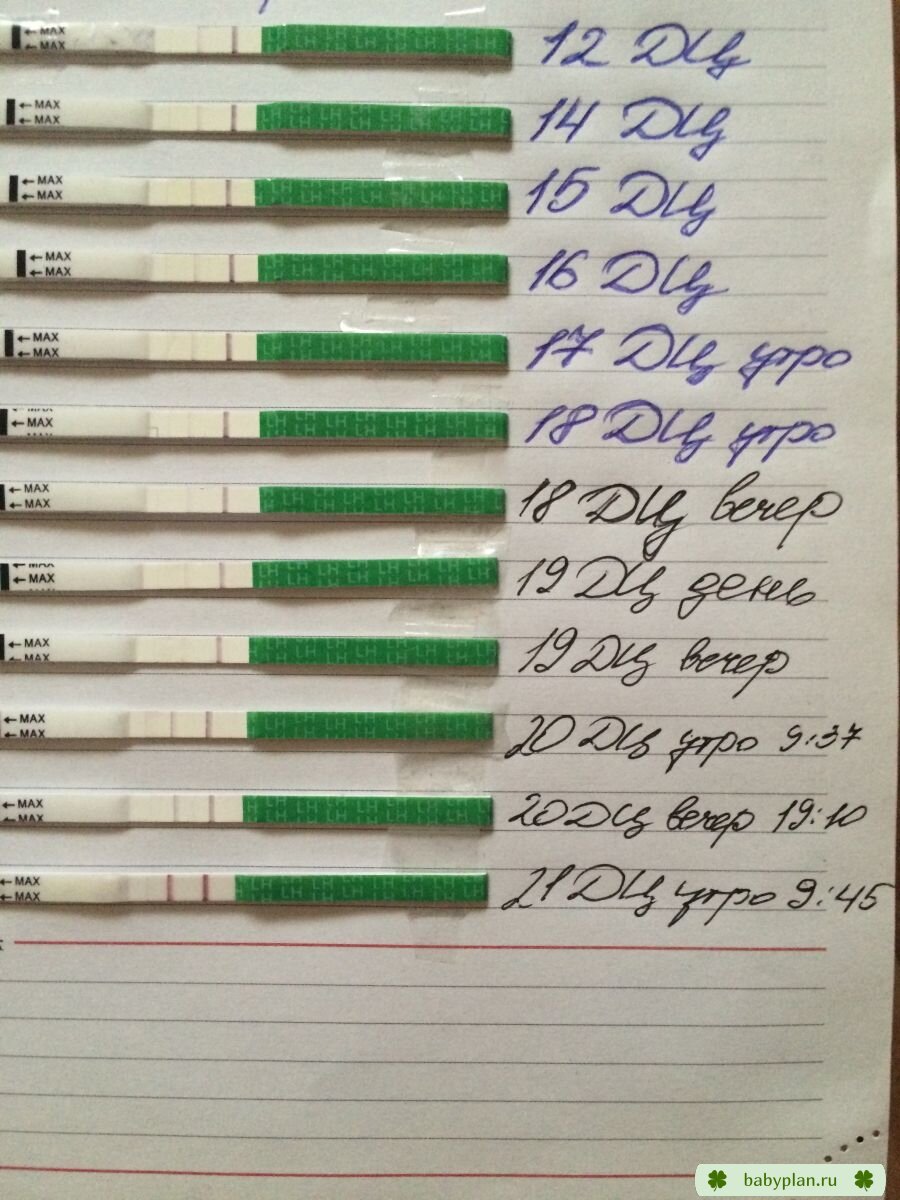 ← MAX
← MAX
12 ДЦ
← MAX
← MAX
14 ДЦ
← MAX
← MAX
15 ДЦ
← MAX
← MAX
16 ДЦ
← MAX
← MAX
17 ДЦ утро
← MAX
18 ДЦ утро
← MAX
← MAX
18 ДЦ вечер
← MAX
← MAX
19 ДЦ день
← MAX
← MAX
19 ДЦ вечер
← MAX
← MAX
20 ДЦ утро 9:37
← MAX
← MAX
20 ДЦ вечер 19:10
← MAX
← MAX
21 ДЦ утро 9:45
babyplan.ru